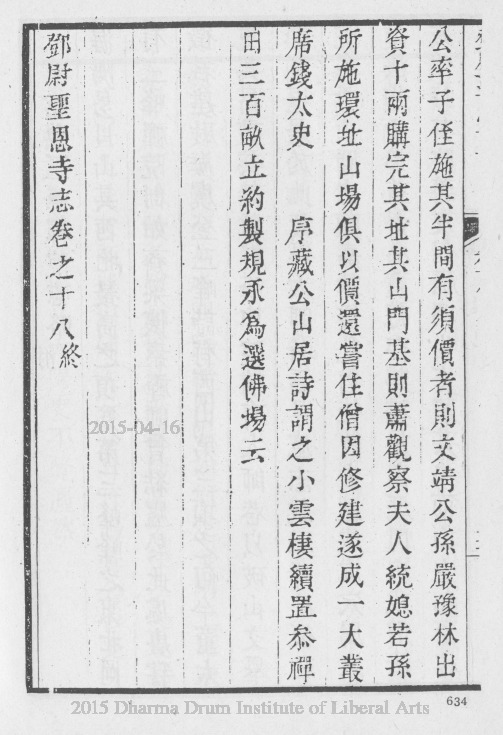 公率子侄施其半間有須價者則文靖公孫嚴豫林出
資十兩購完其址其山門基則蕭觀察夫人統媳若孫
所施環址山場俱以價還嘗住僧因修建遂成一大叢
席錢太史　序藏公山居詩謂之小雲棲續置叅禪
田三百畝立約製規永為選佛場云
鄧尉聖恩寺志卷之十八終
2015-04-16
634
2015 Dharma Drum Institute of Liberal Arts